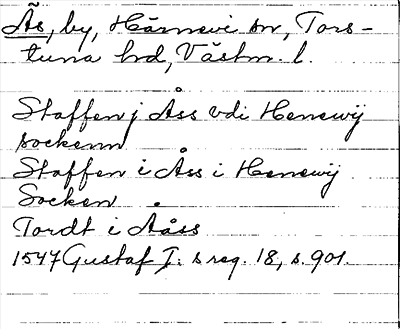 Ås, by, Härnevi sn, Tors-
tuna hd, Västm. l.
Staffen j Åss vdi Henewij
sockenn
Staffen i Åss i Henewij
Socken
Tordt i Aåss
1547 Gustaf I:s reg. 18, s. 901.